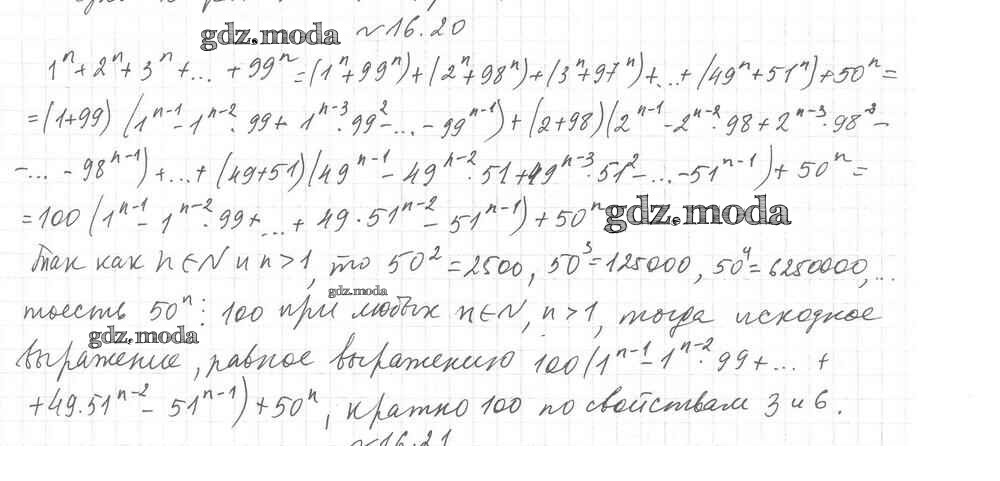 gdz.moda №16.20
1ⁿ + 2ⁿ + 3ⁿ + ... + 99ⁿ = (1ⁿ + 99ⁿ) + (2ⁿ + 98ⁿ) + (3ⁿ + 97ⁿ) + ... + (49ⁿ + 51ⁿ) + 50ⁿ =
= (1+99) (1ⁿ⁻¹ - 1ⁿ⁻² · 99 + 1ⁿ⁻³ · 99² - ... - 99ⁿ⁻¹) + (2+98) (2ⁿ⁻¹ - 2ⁿ⁻² · 98 + 2ⁿ⁻³ · 98² -
- ... - 98ⁿ⁻¹) + ... + (49+51) (49ⁿ⁻¹ - 49ⁿ⁻² · 51 + 49ⁿ⁻³ · 51² - ... - 51ⁿ⁻¹) + 50ⁿ =
= 100 (1ⁿ⁻¹ - 1ⁿ⁻² · 99 + ... + 49 · 51ⁿ⁻² - 51ⁿ⁻¹) + 50ⁿ gdz.moda
Так как n ∈ N и n > 1, то 50² = 2500, 50³ = 125000, 50⁴ = 6250000, ...
gdz.moda
тоесть 50ⁿ ⋮ 100 при любых n ∈ N, n > 1, тогда исходное
gdz.moda
выражение, равное выражению 100 (1ⁿ⁻¹ - 1ⁿ⁻² · 99 + ... +
+ 49 · 51ⁿ⁻² - 51ⁿ⁻¹) + 50ⁿ, кратно 100 по свойствам 3 и 6.
№16.21